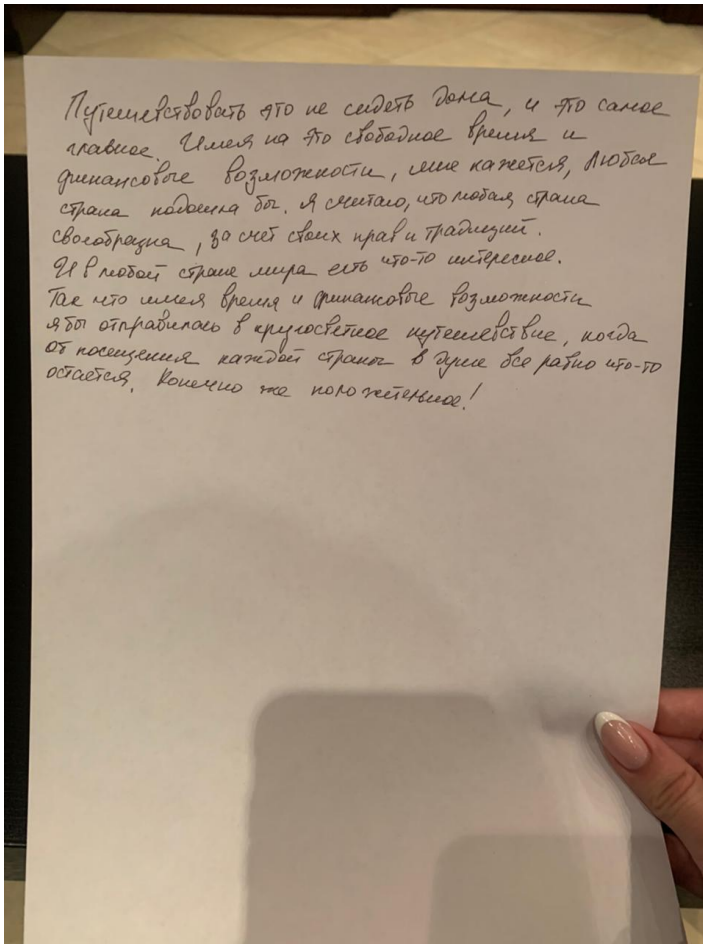 Путешествовать это не сидеть дома, и это самое
главное. Имея на это свободное время и
финансовые возможности, мне кажется, любая
страна подошла бы. Я считаю, что любая страна
своеобразна, за счет своих нрав и традиций.
И в любой стране мира есть что-то интересное.
Так что имея время и финансовые возможности
я бы отправилась в кругосветное путешествие, когда
от посещения каждой страны в душе все равно что-то
остается. Конечно же положительное!